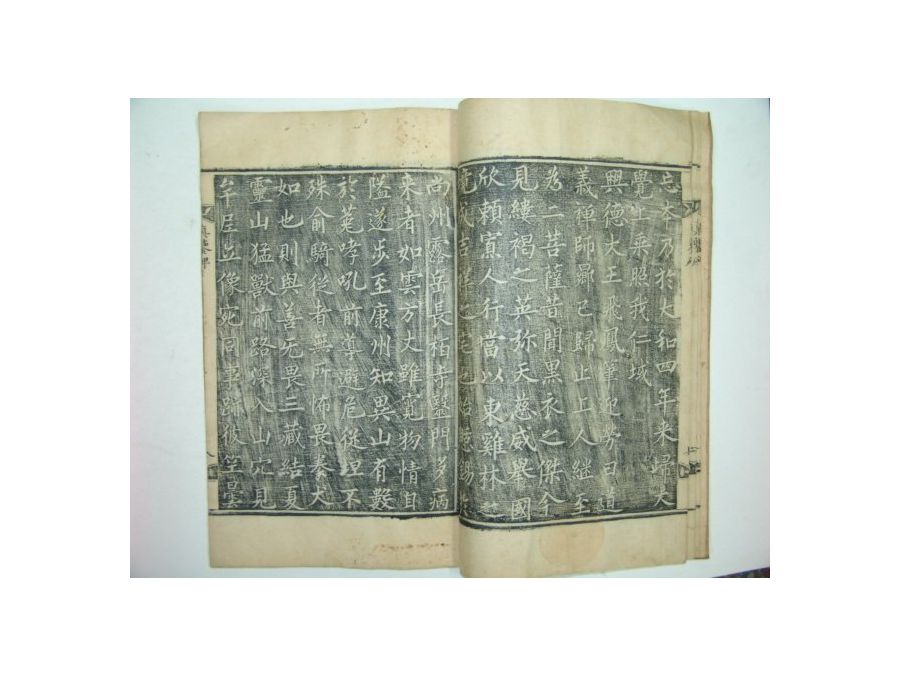 忘本乃於大和四年來歸大
覺上乘照我仁域
興德大王飛鳳筆迎勞曰道
義禪師曏已歸止上人継至
為二菩薩昔聞黒衣之傑今
見縷褐之英弥天慈威舉國
欣頼寡人行當以東雞林之
境成吉祥之宅也始憩錫於
尚州露岳長柏寺毉門多病
来者如雲方丈雖寛物情自
隘遂步至康州知異山有數
於菟哮吼前導避危從坦不
殊俞騎從者無所怖畏豢犬
如也則與善无畏三藏結夏
靈山猛獸前路深入山穴見
牟尼立像宛同事跡彼竺曇
眞鑒碑
八